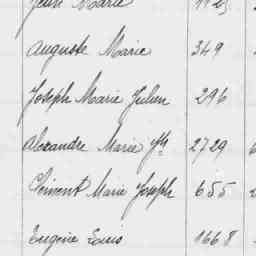 Jean Marie
Auguste Marie 349
Joseph Marie Julien 296
Alexandre Marie Jph 2729
Clément Marie Joseph 655
Eugène Louis 1668